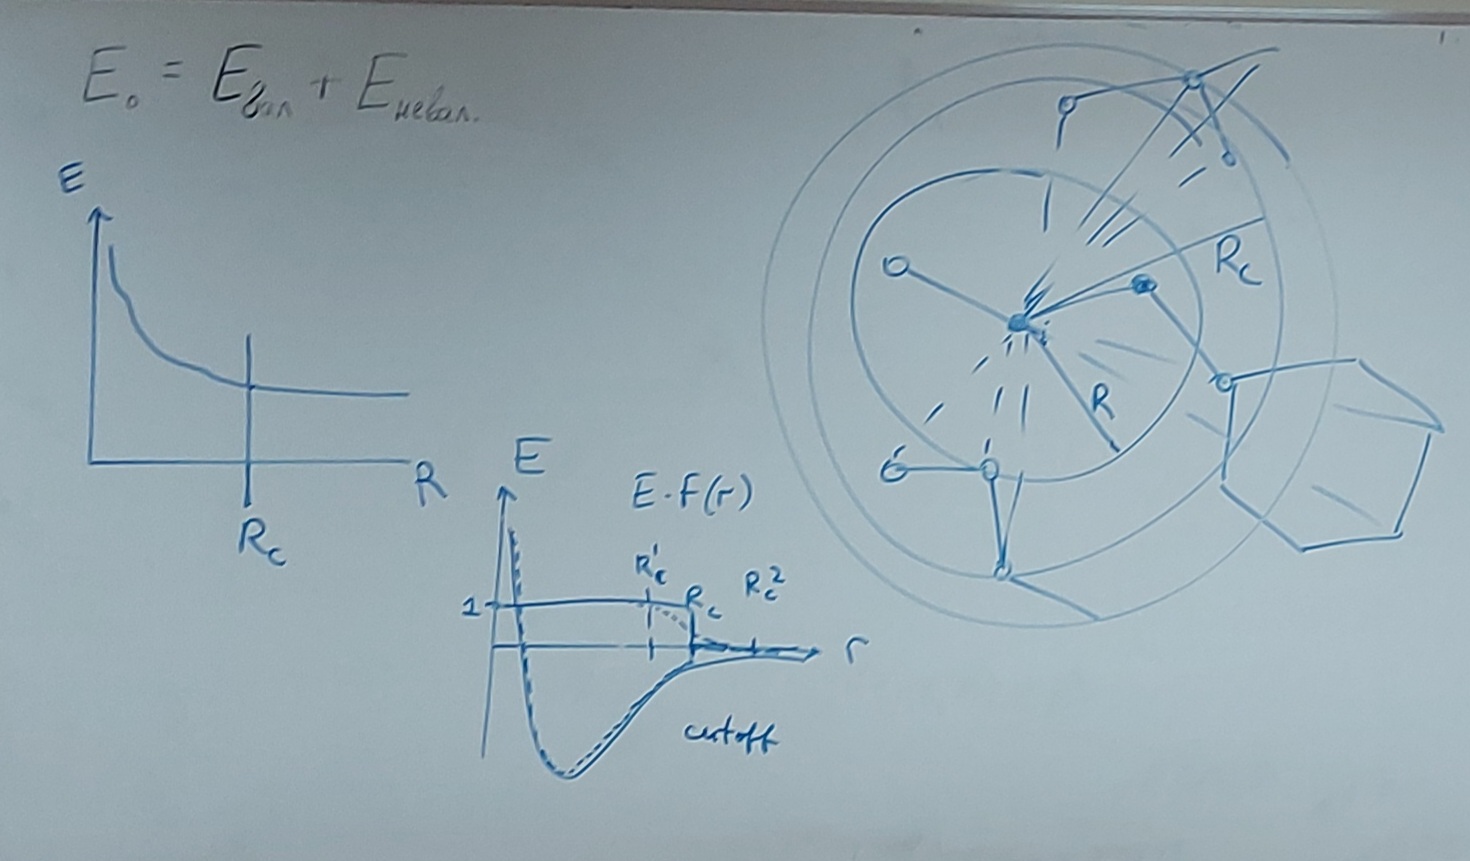 E₀ = Eвал + Eневал.
E
R
Rc
E
E·F(r)
Rc¹
Rc
Rc²
1
r
cutoff
Rc
i
R